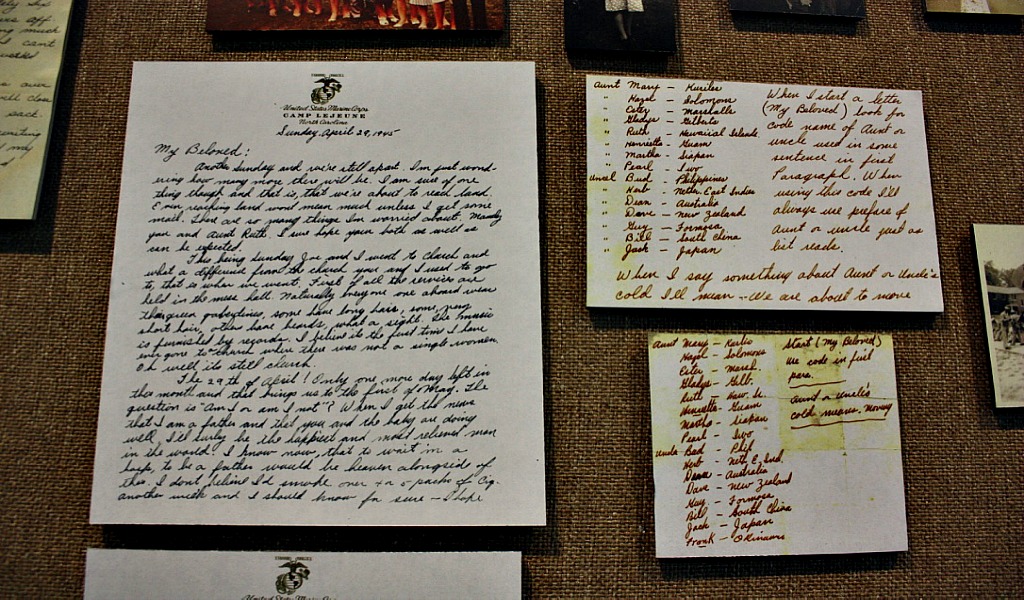 United States Marine Corps
CAMP LEJEUNE
North Carolina
Sunday, April 29, 1945
My Beloved:
Another Sunday and we're still apart. I'm just wond-
ering how many more there will be. I am sure of one
thing though and that is, that we're about to reach land.
Even reaching land wont mean much unless I get some
mail. There are so many things I'm worried about. Mainly
you and Aunt Ruth. I sure hope your both as well as
can be expected.
This being Sunday Joe and I went to church and
what a difference from the church you and I used to go
to, that is when we went. First of all the services are
held in the mess hall. Naturally everyone one aboard wear
their green, some have long hair, some very
short hair, others have beards, what a sight. The music
is furnished by records. I believe its the first time I have
ever gone to church where there was not a single women.
Oh well its still church.
The 29th of April! Only one more day left in
the month and that brings us to the first of May. The
question is "Am I or am I not"? When I get the news
that I am a father and that you and the baby are doing
well, I'll surly be the happiest and most relieved man
in the world! I know now, that to wait on a
ship, to be a father would be heaven alongside of
this. I don't believe I'd smoke over 4 or 5 packs of Cig.
another week and I should know for sure - I hope
Aunt Mary - Kuriles
" Hazel - Solomons
" Ester - Marshalls
" Gladys - Gilberts
" Ruth - Hawaiial Islands.
" Henrietta - Guam
" Martha - Siapan
" Pearl - Iwo
Uncal Bud - Philippines
" Herb - Nether East Indies
" Dean - Australia
" Dave - New Zealand
" Guy - Formosa
" Bill - South China
" Jack - Japan
When I start a letter
(My Beloved) look for
code name of Aunt or
uncle used in some
sentence in first
Paragraph. When
using this code I'll
always use preface of
Aunt or uncle just as
bit reads.
When I say something about Aunt or Uncle's
cold I'll mean -- We are about to move
Aunt Mary - Kurlis
Hazel - Solomons
Ester - Marsh.
Gladys - Gilb.
Ruth - Haw. Is.
Henrietta - Guam
Martha - Siapan
Pearl - Iwo
Uncle Bud - Phil.
Herb - Neth E. Ind.
Dean - Australia
Dave - New Zealand
Guy - Formosa
Bill - South China
Jack - Japan
Frank - Okinawa
Start (My Beloved)
Use code in first
para.
Aunt or Uncle's
cold means. Moving